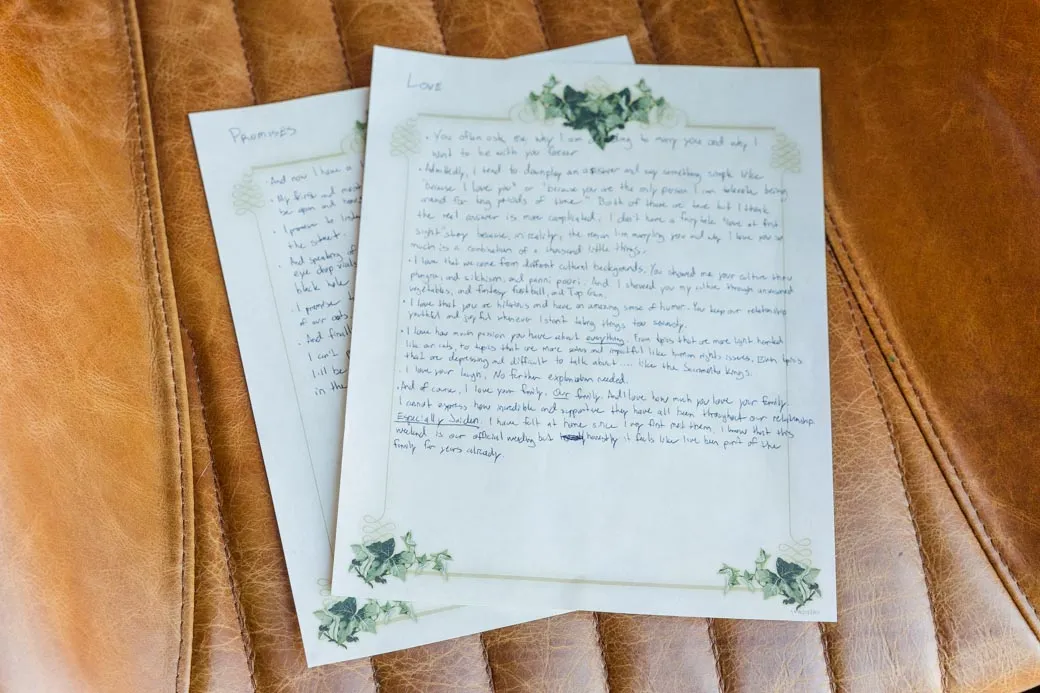 Promises
And now I have a
be open and
I promise to
the street.
And speaking of
eye drop vials
black hole
I promise
of our cats
And finall
I can't
I'll be
in the
Love
• You often ask me why I am to marry you and why I
want to be with you forever
• Admittedly, I tend to downplay an answer and say something simple like
"because I love you" or "because you are the only person I can tolerate being
around for long periods of time." Both of those are true but I think
the real answer is more complicated. I don't have a fairytale "love at first
sight" story because, in reality, the reason I'm marrying you and why I love you so
much is a combination of a thousand little things.
• I love that we come from different cultural backgrounds. You showed me your culture
and sikhism, and pani puri. And I showed you my culture through unseasoned
vegetables, and fantasy football, and Top Gun.
• I love that you are hilarious and have an amazing sense of humor. You keep our relationship
youthful and joyful whenever I start taking things too seriously.
• I love how much passion you have about everything. From topics that are more light hearted
like our cats, to topics that are more and impactful like human rights issues. Even topics
that are depressing and difficult to talk about .... like the Sacramento Kings.
• I love your laugh. No further explanation needed.
• And of course, I love your family. Our family. And I love how much you love your family.
I cannot express how incredible and supportive they have all been throughout our relationship.
Especially I have felt at home since I first met them. I know that this
weekend is our official wedding but honestly it feels like I've been part of the
family for years already.